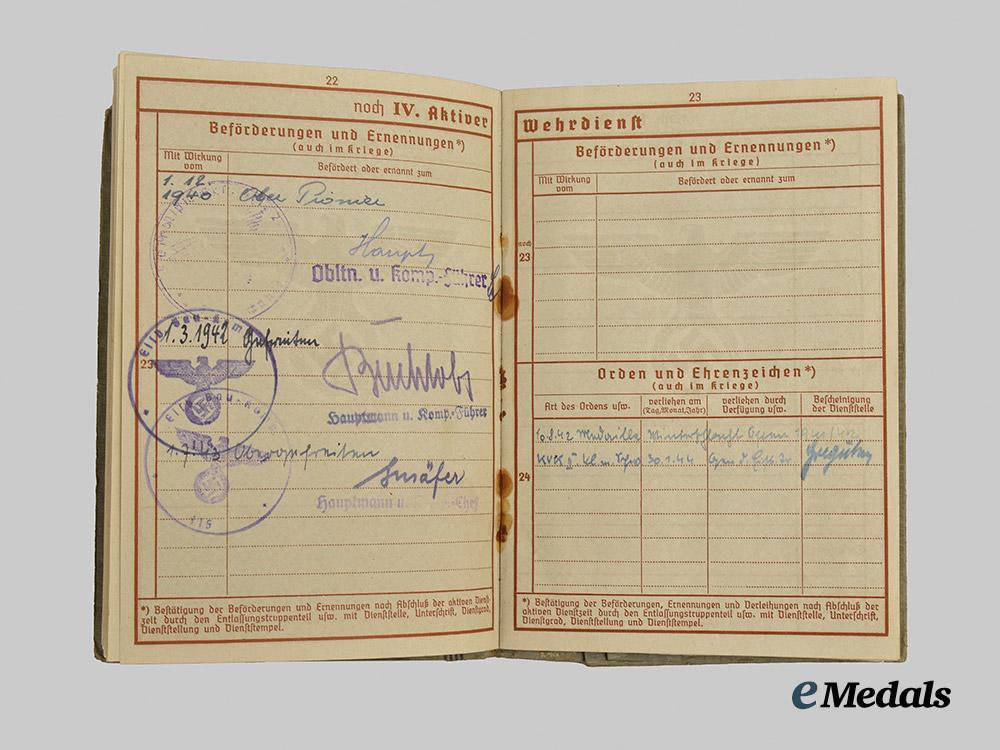 22
noch IV. Aktiver
Beförderungen und Ernennungen*)
(auch im Kriege)
Mit Wirkung vom
Befördert oder ernannt zum
1.12.
1940 Ober Pionier
Obltn. u. Komp.-Führer
1.3.1942 Gefreiten
23
Hauptmann u. Komp.-Führer
Obergefreiten
Hauptmann u.
*) Bestätigung der Beförderungen und Ernennungen nach Abschluß der aktiven Dienst-
zeit durch den Entlassungstruppenteil usw. mit Dienststelle, Unterschrift, Dienstgrad,
Dienststellung und Dienststempel.
23
Wehrdienst
Beförderungen und Ernennungen*)
(auch im Kriege)
Mit Wirkung vom
Befördert oder ernannt zum
noch
23
Orden und Ehrenzeichen*)
(auch im Kriege)
Art des Ordens usw.
verliehen am (Tag,Monat,Jahr)
verliehen durch Verfügung usw.
Bescheinigung der Dienststelle
Medaille Winterschlacht
30.1.44
24
*) Bestätigung der Beförderungen, Ernennungen und Verleihungen nach Abschluß der
aktiven Dienstzeit durch den Entlassungstruppenteil usw. mit Dienststelle, Unterschrift,
Dienstgrad, Dienststellung und Dienststempel.
eMedals